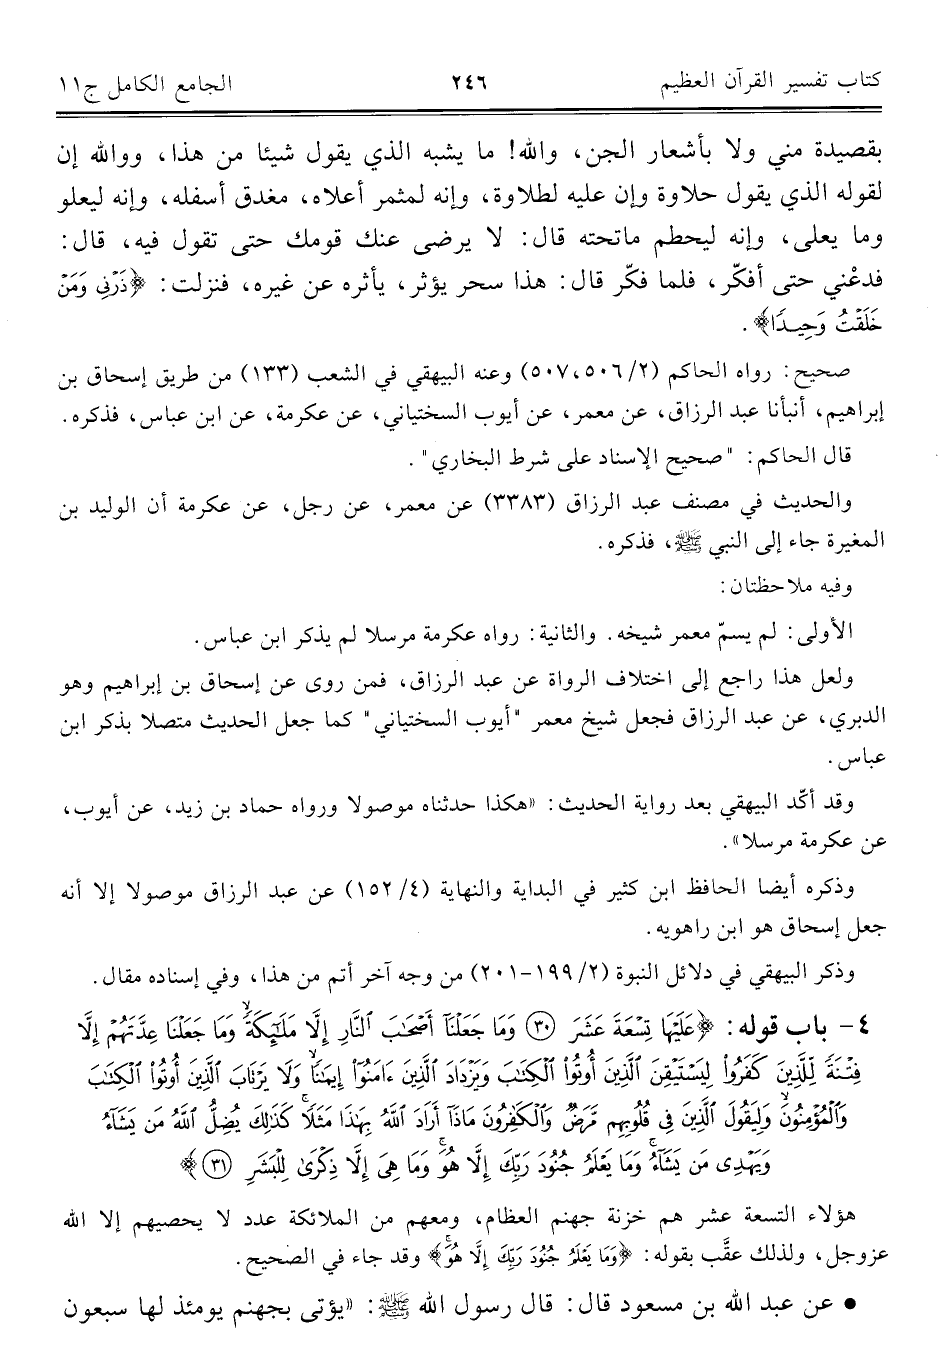 كتاب تفسير القرآن العظيم ٢٤٦ الجامع الكامل ج١١
بقصيدة مني ولا بأشعار الجن، والله! ما يشبه الذي يقول شيئا من هذا، ووالله إن
لقوله الذي يقول حلاوة وإن عليه لطلاوة، وإنه لمثمر أعلاه، مغدق أسفله، وإنه ليعلو
وما يعلى، وإنه ليحطم ماتحته قال: لا يرضى عنك قومك حتى تقول فيه، قال:
فدعْني حتى أفكّر، فلما فكّر قال: هذا سحر يؤثر، يأثره عن غيره، فنزلت: ﴿ذَرْنِي وَمَنْ
خَلَقْتُ وَحِيدًا﴾.
صحيح: رواه الحاكم (٢/ ٥٠٦، ٥٠٧) وعنه البيهقي في الشعب (١٣٣) من طريق إسحاق بن
إبراهيم، أنبأنا عبد الرزاق، عن معمر، عن أيوب السختياني، عن عكرمة، عن ابن عباس، فذكره.
قال الحاكم: "صحيح الإسناد على شرط البخاري".
والحديث في مصنف عبد الرزاق (٣٣٨٣) عن معمر، عن رجل، عن عكرمة أن الوليد بن
المغيرة جاء إلى النبي ﷺ، فذكره.
وفيه ملاحظتان:
الأولى: لم يسمّ معمر شيخه. والثانية: رواه عكرمة مرسلا لم يذكر ابن عباس.
ولعل هذا راجع إلى اختلاف الرواة عن عبد الرزاق، فمن روى عن إسحاق بن إبراهيم وهو
الدبري، عن عبد الرزاق فجعل شيخ معمر "أيوب السختياني" كما جعل الحديث متصلا بذكر ابن
عباس.
وقد أكّد البيهقي بعد رواية الحديث: «هكذا حدثناه موصولا ورواه حماد بن زيد، عن أيوب،
عن عكرمة مرسلا».
وذكره أيضا الحافظ ابن كثير في البداية والنهاية (٤/ ١٥٢) عن عبد الرزاق موصولا إلا أنه
جعل إسحاق هو ابن راهويه.
وذكر البيهقي في دلائل النبوة (٢/ ١٩٩-٢٠١) من وجه آخر أتم من هذا، وفي إسناده مقال.
٤- باب قوله: ﴿عَلَيْهَا تِسْعَةَ عَشَرَ ٣٠ وَمَا جَعَلْنَآ أَصْحَٰبَ ٱلنَّارِ إِلَّا مَلَٰٓئِكَةً ۙ وَمَا جَعَلْنَا عِدَّتَهُمْ إِلَّا
فِتْنَةً لِّلَّذِينَ كَفَرُوا۟ لِيَسْتَيْقِنَ ٱلَّذِينَ أُوتُوا۟ ٱلْكِتَٰبَ وَيَزْدَادَ ٱلَّذِينَ ءَامَنُوٓا۟ إِيمَٰنًا ۙ وَلَا يَرْتَابَ ٱلَّذِينَ أُوتُوا۟ ٱلْكِتَٰبَ
وَٱلْمُؤْمِنُونَ ۙ وَلِيَقُولَ ٱلَّذِينَ فِى قُلُوبِهِم مَّرَضٌ وَٱلْكَٰفِرُونَ مَاذَآ أَرَادَ ٱللَّهُ بِهَٰذَا مَثَلًا ۚ كَذَٰلِكَ يُضِلُّ ٱللَّهُ مَن يَشَآءُ
وَيَهْدِى مَن يَشَآءُ ۚ وَمَا يَعْلَمُ جُنُودَ رَبِّكَ إِلَّا هُوَ ۚ وَمَا هِىَ إِلَّا ذِكْرَىٰ لِلْبَشَرِ ٣١﴾
هؤلاء التسعة عشر هم خزنة جهنم العظام، ومعهم من الملائكة عدد لا يحصيهم إلا الله
عزوجل، ولذلك عقَّب بقوله: ﴿وَمَا يَعْلَمُ جُنُودَ رَبِّكَ إِلَّا هُوَ ۚ﴾ وقد جاء في الصحيح.
• عن عبد الله بن مسعود قال: قال رسول الله ﷺ: «يؤتى بجهنم يومئذ لها سبعون